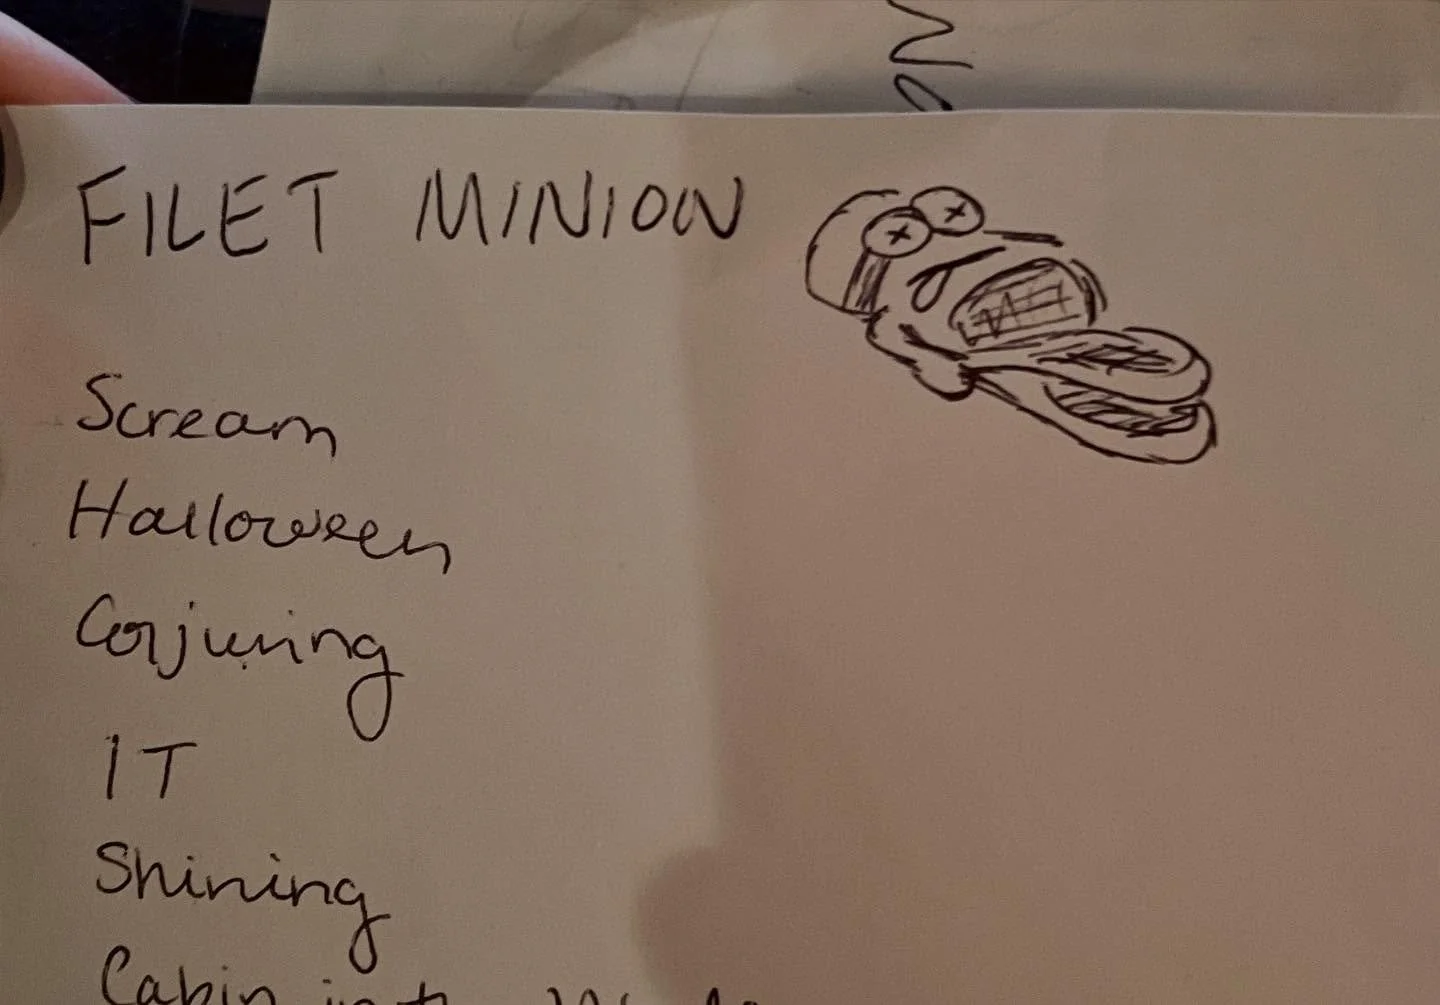 FILET MINION
Scream
Halloween
Conjuring
IT
Shining
Cabin in the